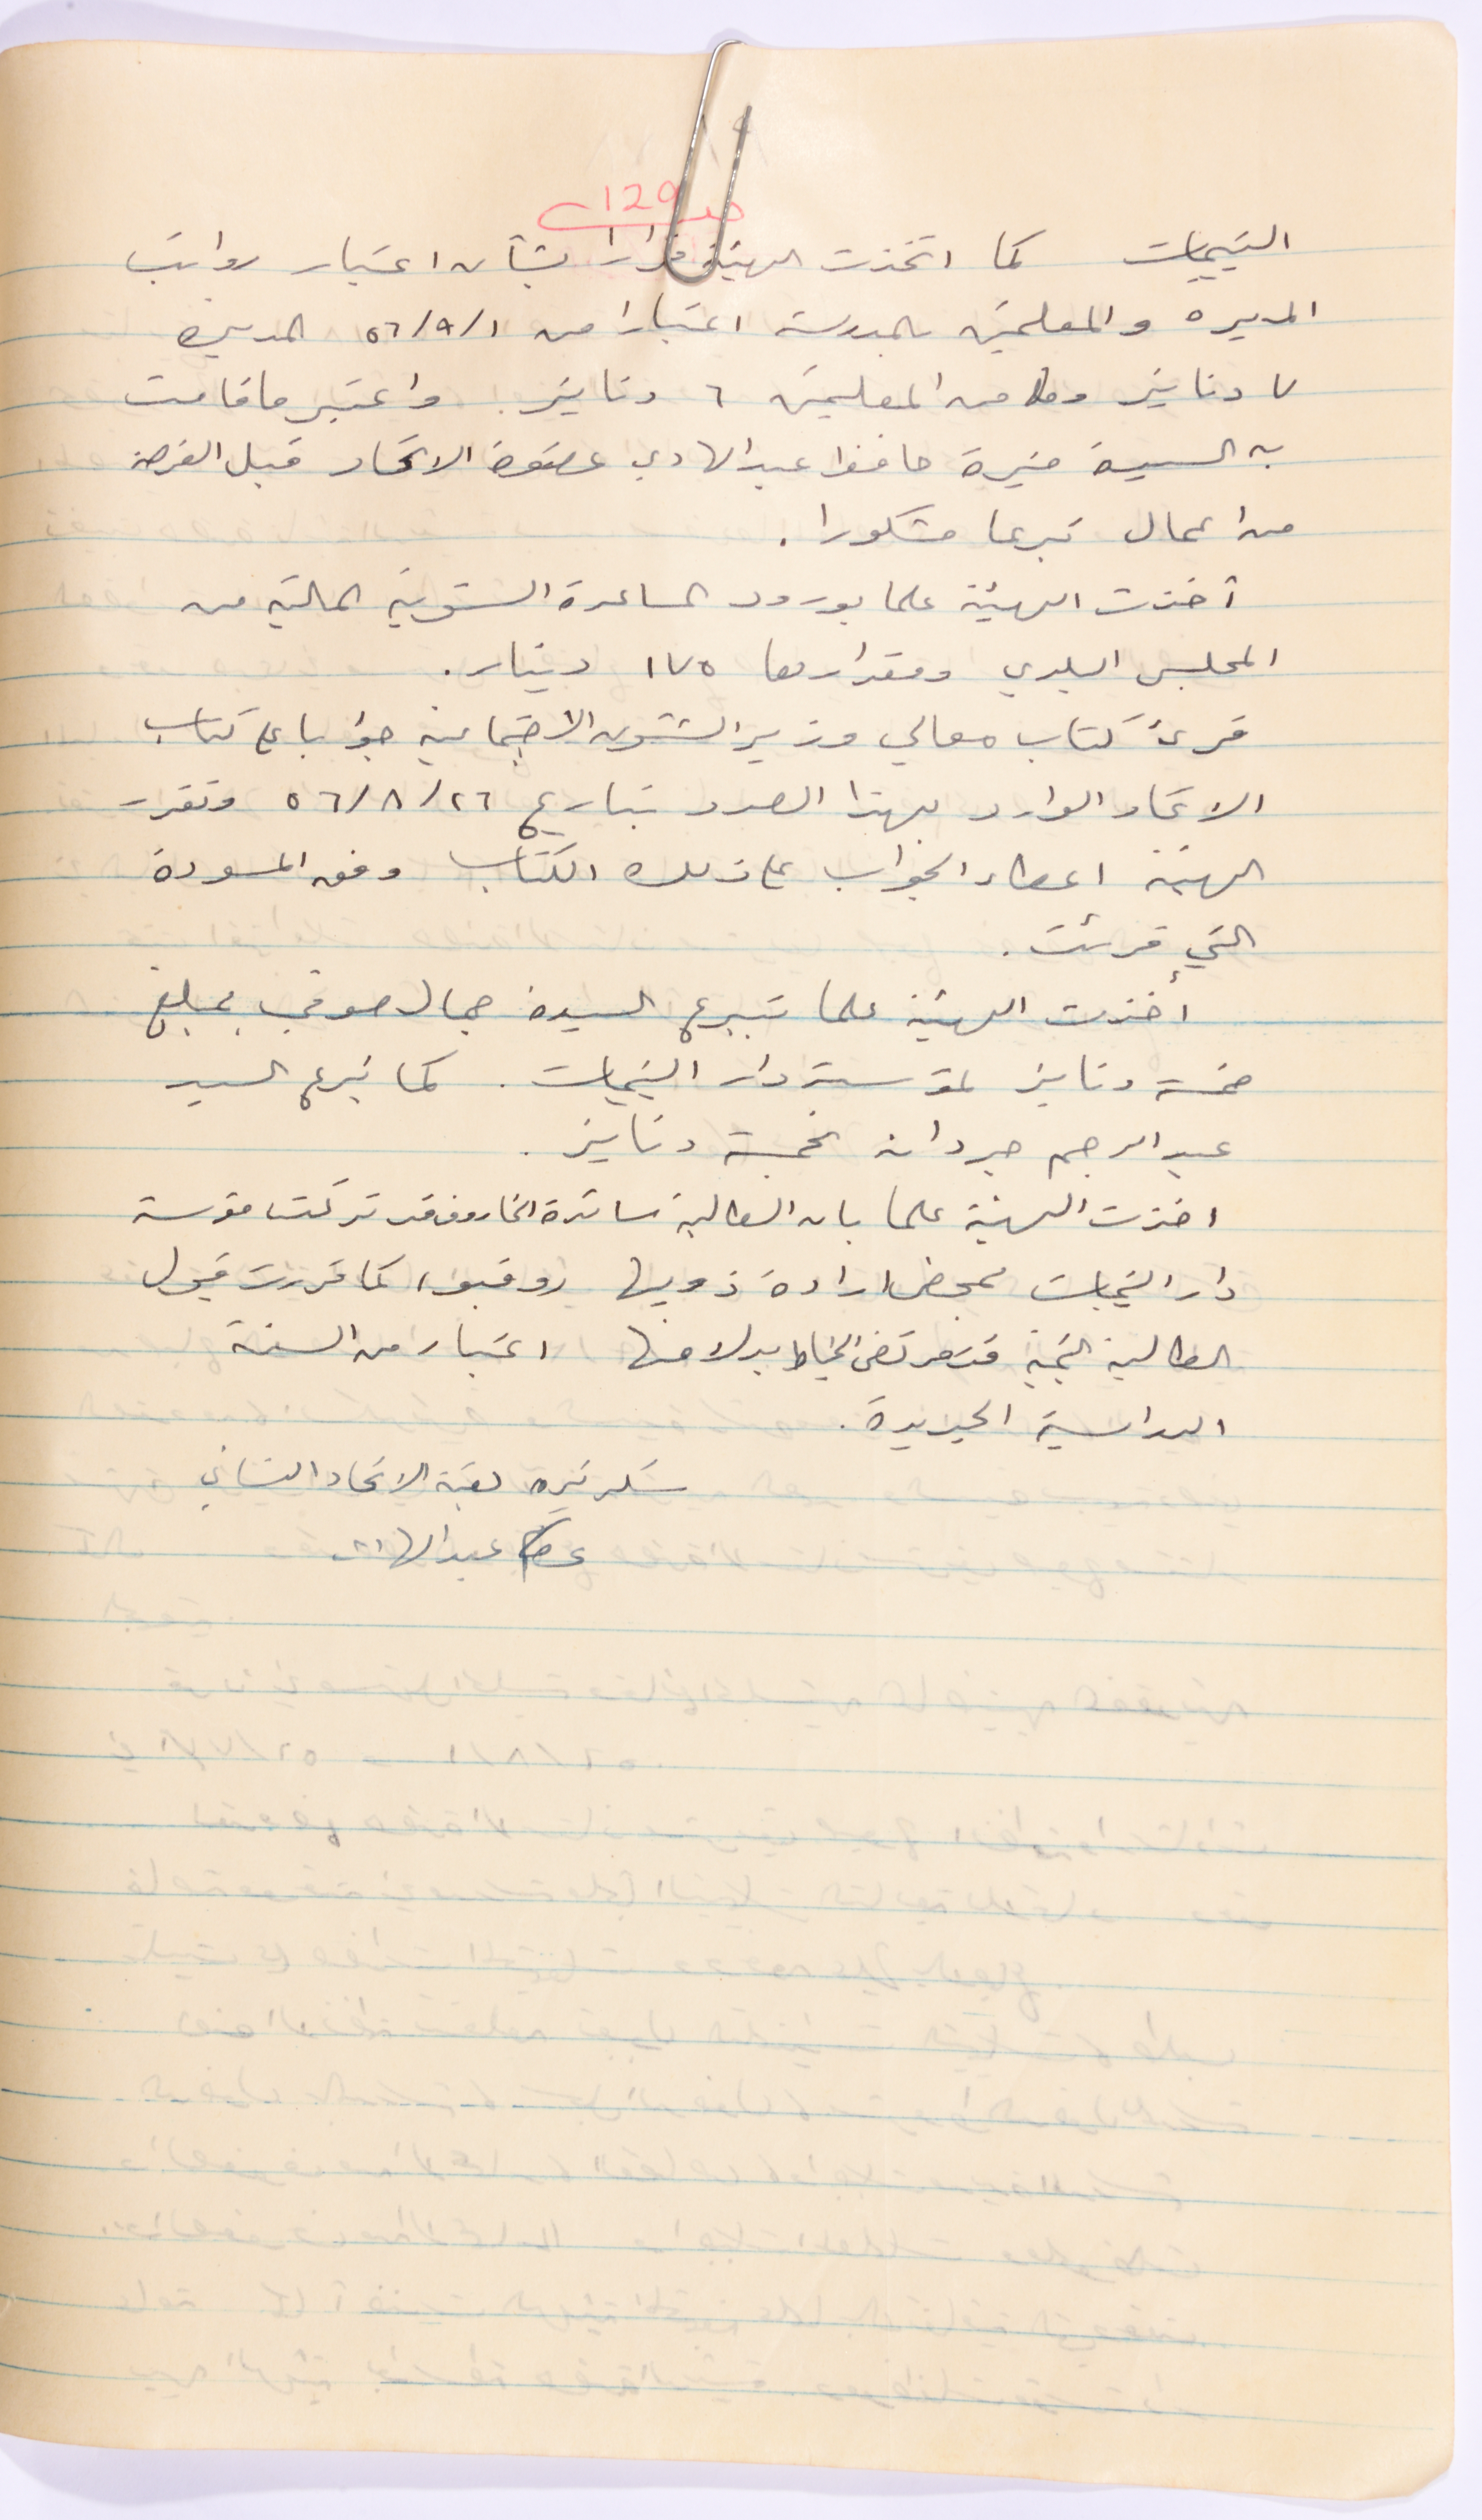 صـ 129
اليتيمات كما اتخذت الهيئة قرارا بشأن اعتبار رواتب
المديره والمعلمين بالمدرسة اعتبارا من ٥٦/٩/١ المديرة
٧ دنانير وكلا من المعلمين ٦ دنانير. واعتبر ما قامت
به السيدة منيرة حافظ عبد الهادي عضوة الاتحاد قبل الفرصة
من اعمال تبرعا مشكورا.
أخذت الهيئة علما بورود المساعدة السنوية المالية من
المجلس البلدي ومقدارها ١٧٥ دينار.
قرئ كتاب معالي وزير الشئون الاجتماعية جوابا على كتاب
الاتحاد الوارد بهذا الصدد بتاريخ ٥٦/٨/٢٦ وتقرر
الهيئة اعطاء الجواب على ذلك الكتاب وفق المسودة
التي قرئت.
أخذت الهيئة علما بتبرع السيدة جمال صوفي بمبلغ
خمسة دنانير لمؤسسة دار اليتيمات. كما تبرع السيد
عبد الرحيم جردانه بخمسة دنانير.
اخذت الهيئة علما بان الطالبة ساندة الخاروف قد تركت مؤسسة
دار اليتيمات بمحض ارادة ذويها كما قررت قبول
الطالبة اليتيمة مرتضى الخياط بدلا منها اعتبار من السنة
الدراسية الجديدة.
سكرتيره لجنة الاتحاد النسائي
عصام عبد الهادي